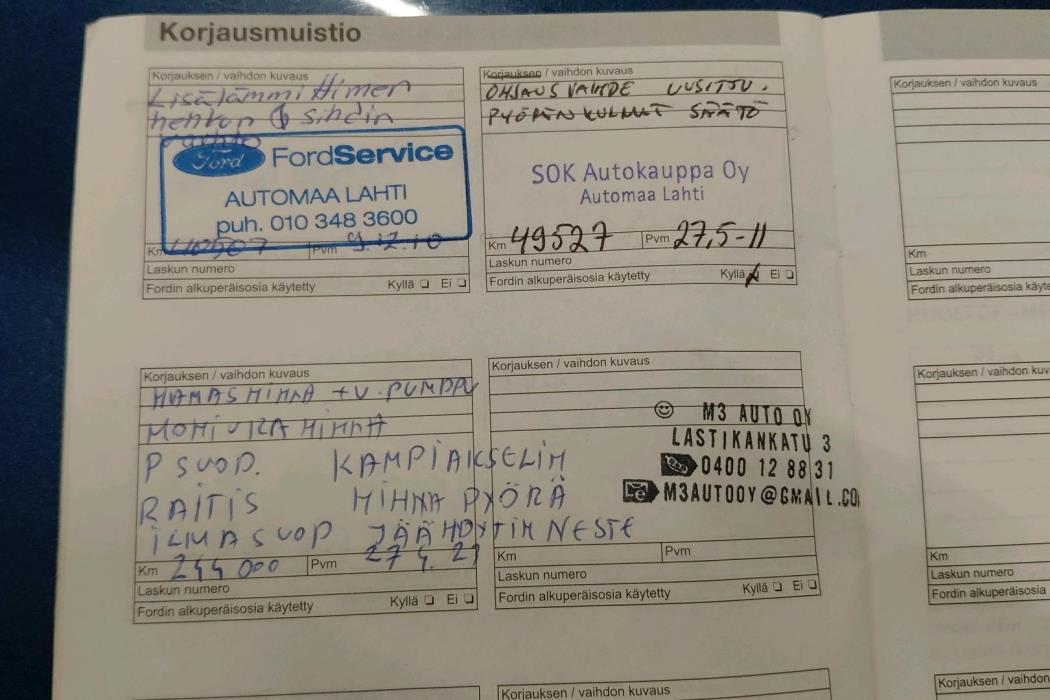 Korjausmuistio
Korjauksen / vaihdon kuvaus
Lisälämmittimen
hehkun & sihdin
vaihto
Ford FordService
AUTOMAA LAHTI
puh. 010 348 3600
Km Pvm 9.12.10
Laskun numero
Fordin alkuperäisosia käytetty Kyllä Ei
Korjauksen / vaihdon kuvaus
OHJAUSVAIHDE UUSITTU.
PYÖRÄN KULMAT SÄÄTÖ
SOK Autokauppa Oy
Automaa Lahti
Km 49527 Pvm 27,5-11
Laskun numero
Fordin alkuperäisosia käytetty Kyllä Ei
Korjauksen / vaihdon kuvaus
HAMASHIHNA + V. PUMPPU
MONIURAHIHNA
P SUOD. KAMPIAKSELIN
RAITIS HIHNAPYÖRÄ
ILMASUOD JÄÄHDYTIN NESTE
Km 244 000 Pvm 27 4. 21
Laskun numero
Fordin alkuperäisosia käytetty Kyllä Ei
Korjauksen / vaihdon kuvaus
M3 AUTO OY
LASTIKANKATU 3
0400 12 88 31
M3AUTOOY@GMAIL.CO
Km Pvm
Laskun numero
Fordin alkuperäisosia käytetty Kyllä Ei
Korjauksen / vaihdon kuvaus
Km
Laskun numero
Fordin alkuperäisosia käyte
Korjauksen / vaihdon kuv
Km
Laskun numero
Fordin alkuperäisosia
Korjauksen / vaihdon kuvaus
Korjauksen / vaihdon